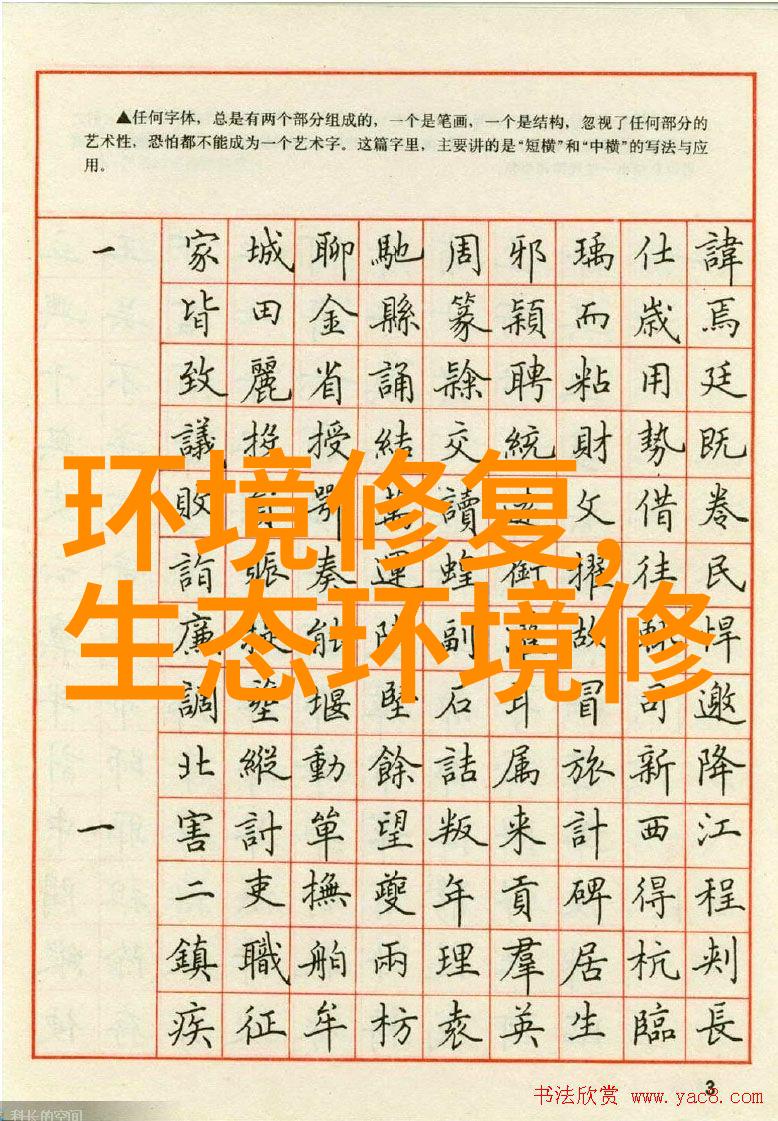 ▲任何字体，总是有两个部分组成的，一个是笔画，一个是结构，忽视了任何部分的
艺术性，恐怕都不能成为一个艺术字。这篇字里，主要讲的是“短横”和“中横”的写法与应
用。
一 家 城 聊 馳 周 邪 瑀 仕 諱
皆 田 金 縣 篆 穎 而 歲 焉
致 麗 省 誦 聘 粘 用 廷
議 投 授 結 交 統 財 勢 既
敗 鄂 讀 文 借 卷
詣 張 奏 運 蝗 銜 擢 往 民
廉 能 副 故 悍
調 堰 堅 石 耳 冒 司 邀
北 縱 動 餘 詰 属 旅 新 降
一 害 討 單 望 叛 来 計 西 江
二 吏 撫 夔 年 貢 碑 得 程
鎮 職 舶 兩 理 羣 居 杭
疾 征 牟 枋 袁 英 生 臨 長
环境修复,
生态环境修
3
书法欣赏 www.yac8.com
科长的空间